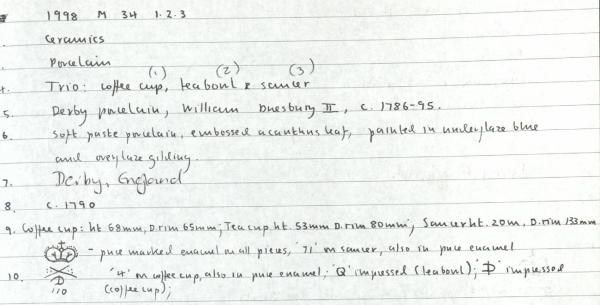 1998 M 34 1.2.3
Ceramics
Porcelain
(1) (2) (3)
4. Trio: coffee cup, teabowl & saucer
5. Derby porcelain, William Duesbury II, c. 1786-95.
6. Soft paste porcelain, embossed acanthus leaf, painted in underglaze blue
and overglaze gilding.
7. Derby, England
8. c. 1790
9. Coffee cup: ht 68mm, D. rim 65mm; Tea cup ht. 53mm D. rim 80mm; Saucer ht. 20m, D. rim 133mm
- puce marked enamel on all pieces, '71' on saucer, also in puce enamel
10. D '4' on coffee cup, also in puce enamel; 'Q' impressed (teabowl); 'D' impressed
110 (coffee cup);